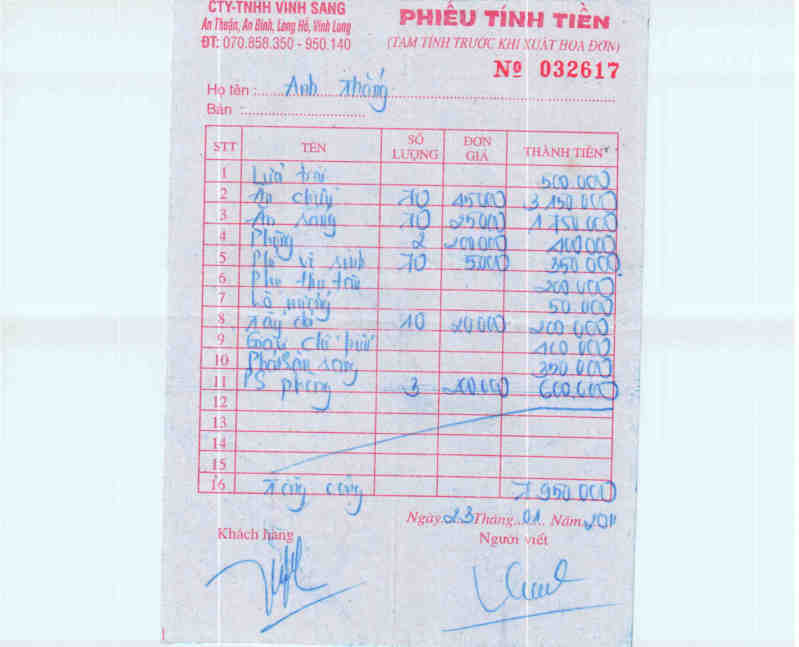 CTY-TNHH VINH SANG
An Thuận, An Bình, Long Hồ, Vĩnh Long
ĐT: 070.858.350 - 950.140
PHIẾU TÍNH TIỀN
(TẠM TÍNH TRƯỚC KHI XUẤT HÓA ĐƠN)
Nº 032617
Họ tên : Anh Thắng
Bàn :
STT TÊN SỐ LƯỢNG ĐƠN GIÁ THÀNH TIỀN
1 Lửa trại 500.000
2 Ăn chiều 70 45000 3 150.000
3 Ăn sáng 70 25000 1 750.000
4 Phòng 2 200000 400 000
5 Phí vệ sinh 70 5000 350 000
6 Phụ thu 200 000
7 Lò nướng 50.000
8 10 20000 200 000
9 400 000
10 350 000
11 PS phòng 3 200.000 600.000
12
13
14
15
16 Tổng cộng 7 950 000
Ngày 23 Tháng 01 Năm 2011
Khách hàng Người viết